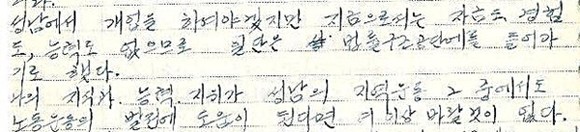 성남에서 개업을 하여야겠지만 지금으로서는 자금도, 경험
도, 능력도 없으므로 일단은 법률구조공단에를 들어가
기로 했다.
나의 지식과 능력, 지위가 성남의 지역운동 그 중에서도
노동운동의 발전에 도움이 된다면 더 이상 바랄 것이 없다.